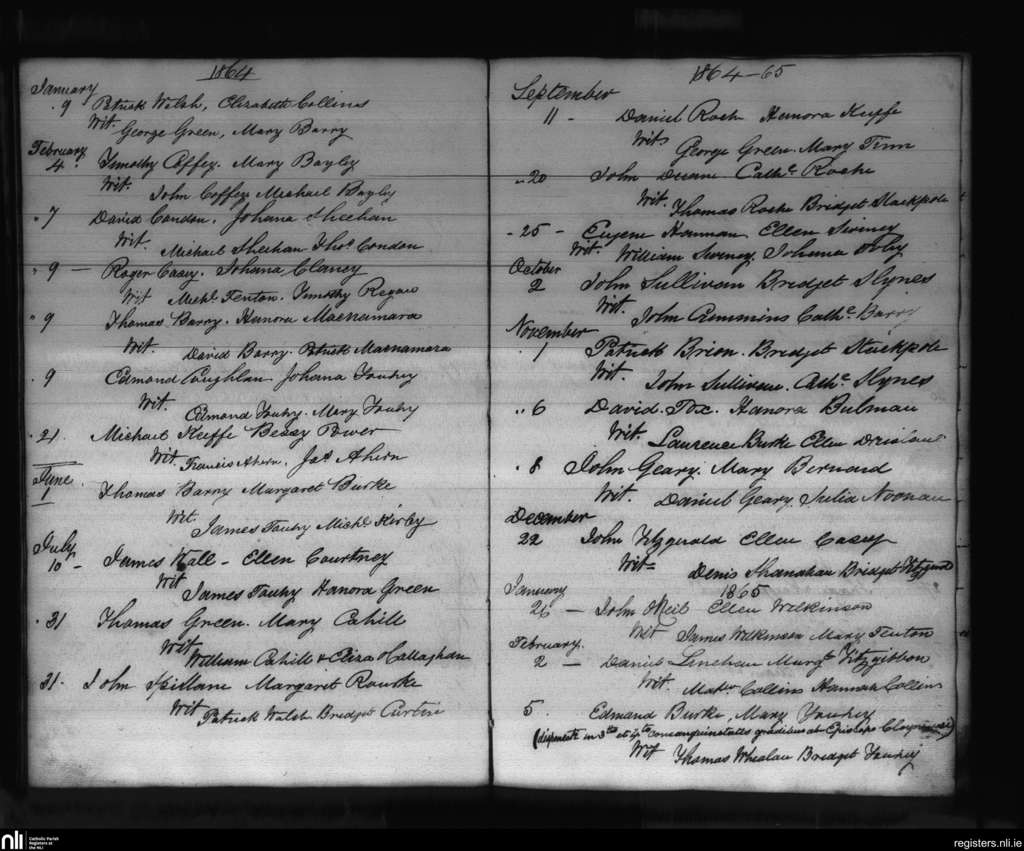 1864
January
9 Patrick Walsh, Elizabeth Collins
Wit. George Green, Mary Barry
February
4 Timothy Coffey. Mary Bayley
Wit. John Coffey Michael Bayley
" 7 David Condon. Johana Sheehan
Wit. Michael Sheehan Thos. Condon
" 9 — Roger Casey. Johana Clancy
Wit Michl. Fenton. Timothy Regan
" 9 Thomas Barry. Hanora Macnamara
Wit. David Barry. Patrick Macnamara
. 9 Edmond Coughlan Johana
Wit. Edmond Mary
. 21. Michael Keeffe Bessy Power
Wit. Francis Ahern. Jas Ahern
June
1 Thomas Barry Margaret Burke
Wit. James Michl. Kirby
July
10 - James Wall - Ellen Courtney
Wit James Hanora Green
. 31 Thomas Green. Mary Cahill
Wit William Cahill & Eliza OCallaghan
31. John Spillane Margaret Rourke
Wit Patrick Walsh Bridget Curtin
1864-65
September
11 - Daniel Roch Hanora Keeffe
Wits George Green. Mary Finn
" 20 John Duane Cathe. Roche
Wit. Thomas Roche Bridget Stackpole
- 25 - Eugene Hannan Ellen Swiney
Wit. William Swiney Johana
October
2 John Sullivan Bridget Hynes
Wit. John Cummins Cathe. Barry
November
1 Patrick Brion. Bridget Stackpole
Wit. John Sullivan. Cathe Hynes
" 6 David Fox. Hanora Bulman
Wit. Laurence Burke Ellen
. 8 John Geary. Mary Bernard
Wit. Daniel Geary. Julia Noonan
December
22 John Fitzgerald Ellen Casey
Wit= Denis Shanahan Bridget Fitzgerald
1865
January
26 — John ONeil Ellen Wilkinson
Wit James Wilkinson Mary Fenton
February.
2 — Daniel Linehan Margt. Fitzgibbon
Wit. Mattw Collins Hannah Collins
5. Edmond Burke, Mary
(dispensate in 3tio et 4to consanguinitatis gradibus ab Episcopo
Wit Thomas Whealan Bridget
nli
Catholic Parish
Registers at
the NLI
registers.nli.ie